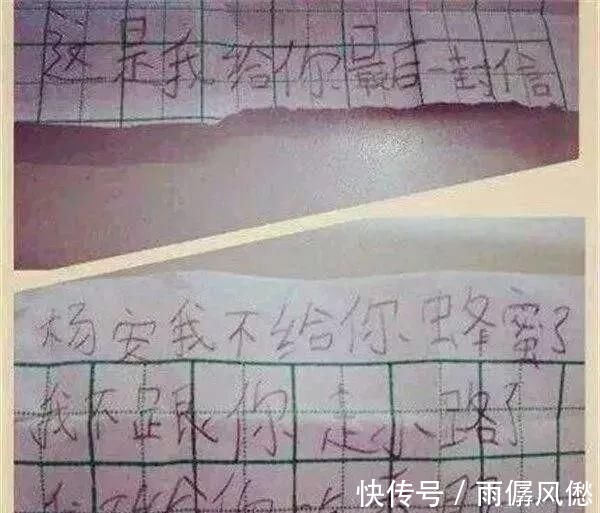 这是我给你最后一封信
杨安我不给你蜂蜜了
我不跟你走小路了
快传号 / 雨僝风僽